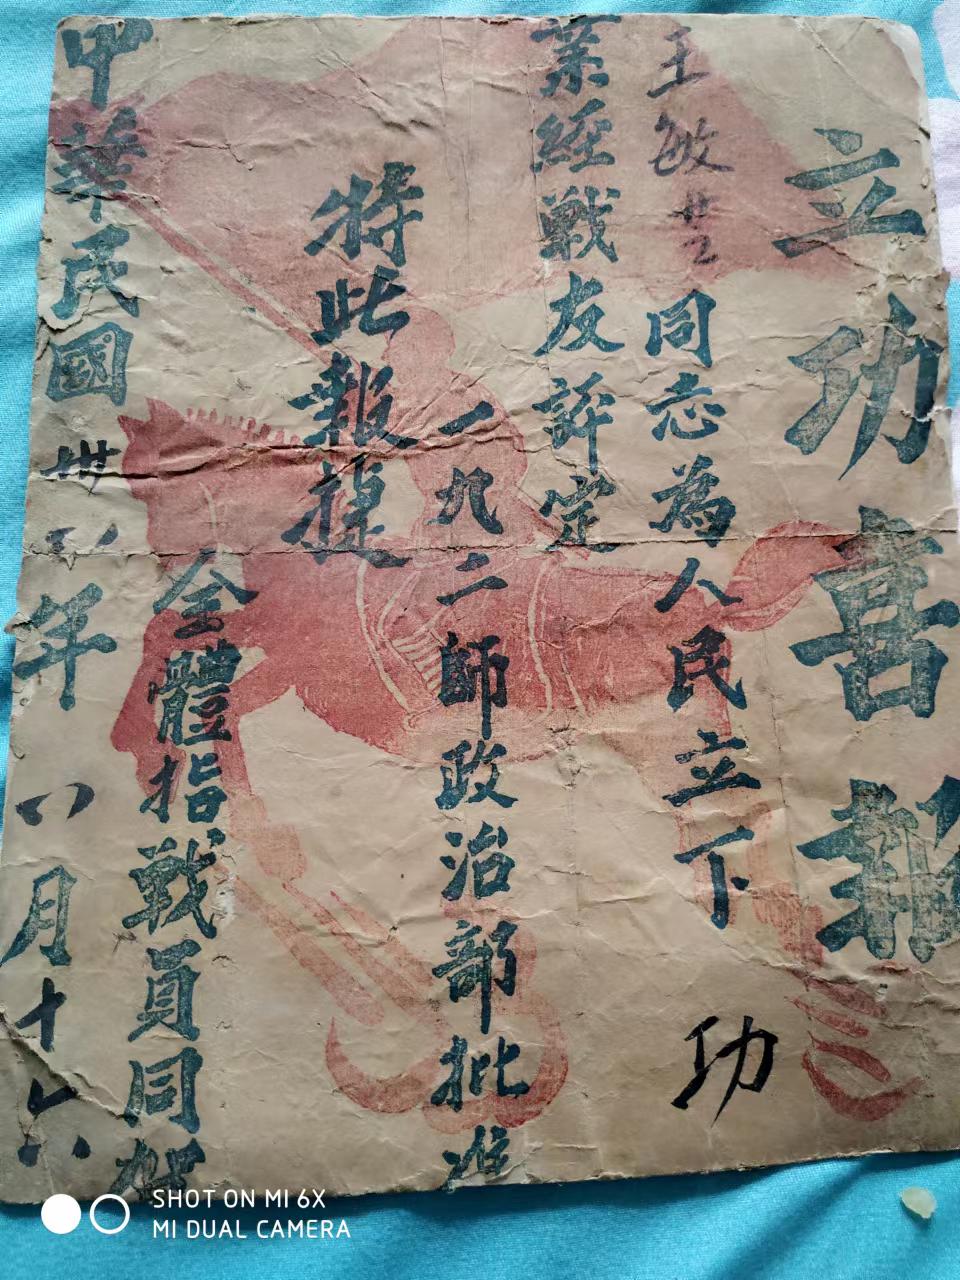 立功喜報
王敏 同志為人民立下 功
業經戰友評定
一九二師政治部批准
特此報捷
全體指戰員同賀
中華民國卅八年八月十
SHOT ON MI 6X
MI DUAL CAMERA